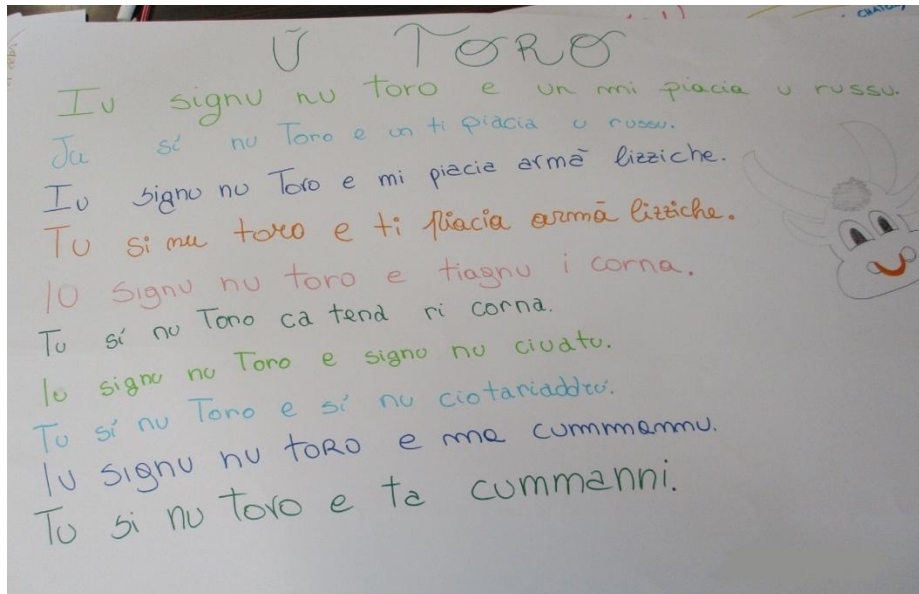 Ū TORO
Iu signu nu toro e un mi piacia u russu.
Ju sí nu Toro e un ti piacia u russu.
Iu signu nu Toro e mi piacia armā lizziche.
Tu si nu toro e ti piacia armā lizziche.
Io signu nu toro e tiagnu i corna.
Tu sí nu Toro ca tend ri corna.
Io signu nu Toro e signo nu ciuatu.
Tu sí nu Toro e sí nu ciotariaddru.
Iu signu nu toRo e me cummannu.
Tu si nu toro e te cummanni.